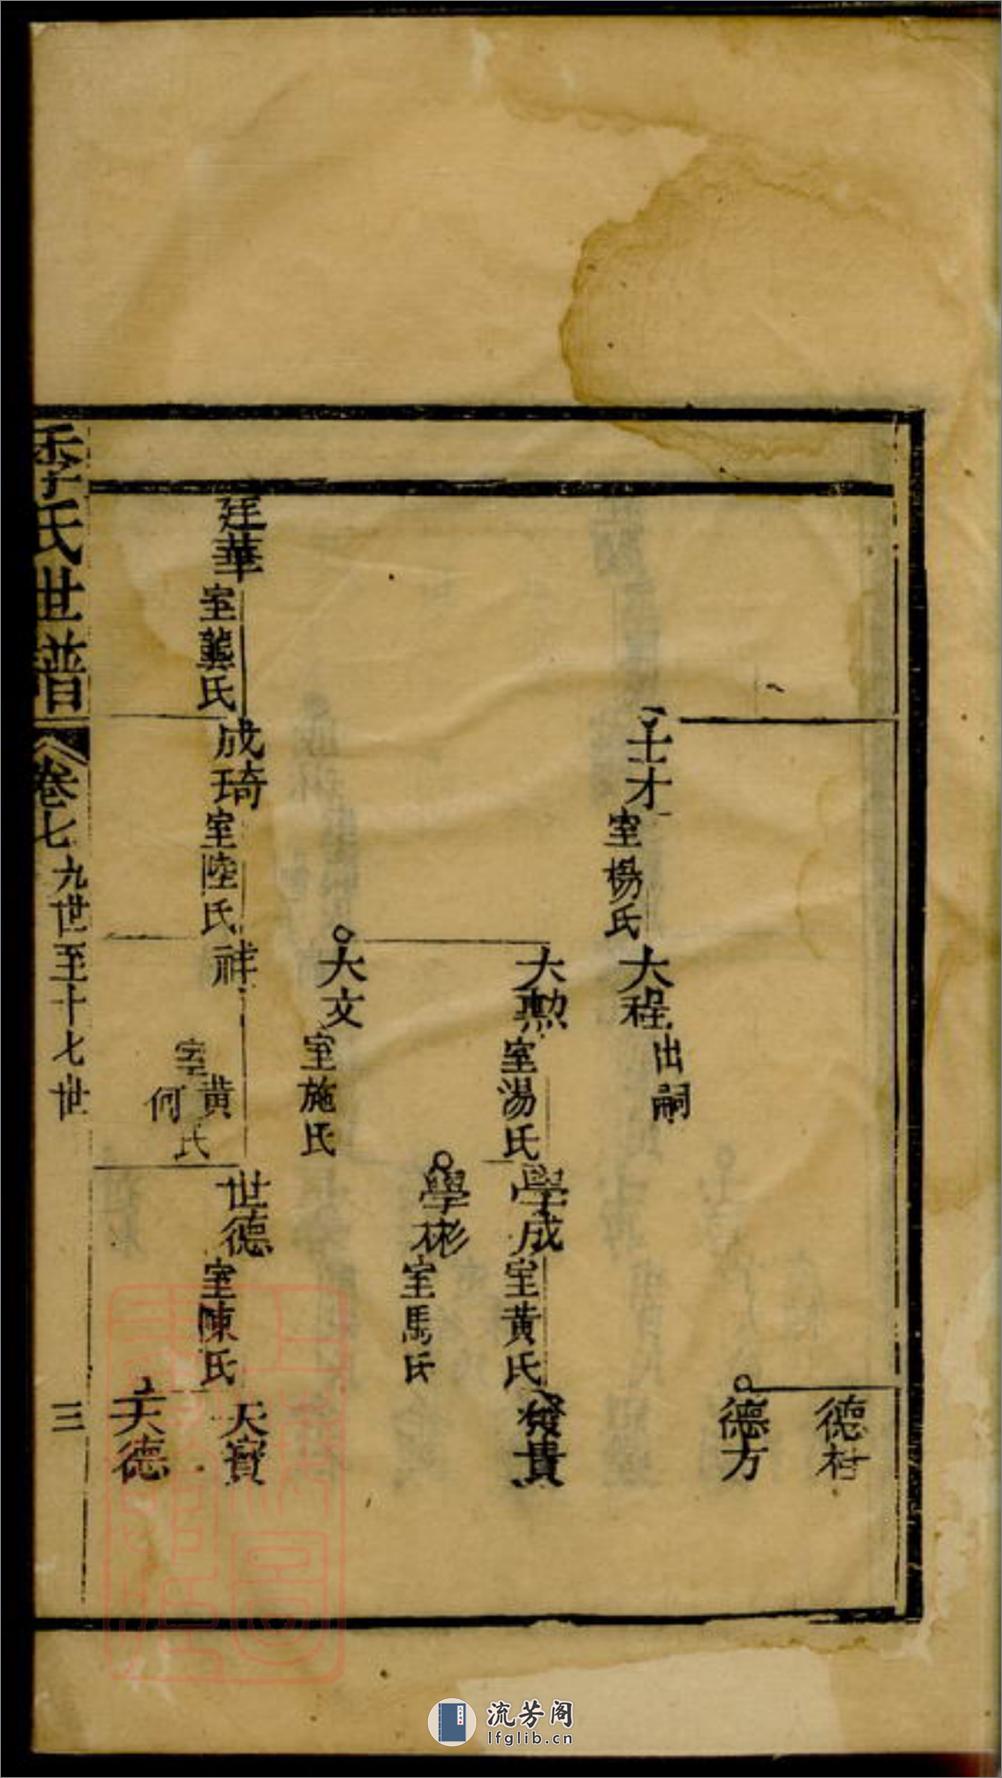 德桂
德方
士才
室楊氏
大程
出嗣
大勲
室湯氏
學成
室黃氏
發貴
學彬
室馬氏
大文
室施氏
廷華
室龔氏
成琦
室陸氏
祥
室黃何氏
世德
室陳氏
天寶
天德
季氏世譜
卷七
九世至十七世
三
流芳阁
lfglib.cn